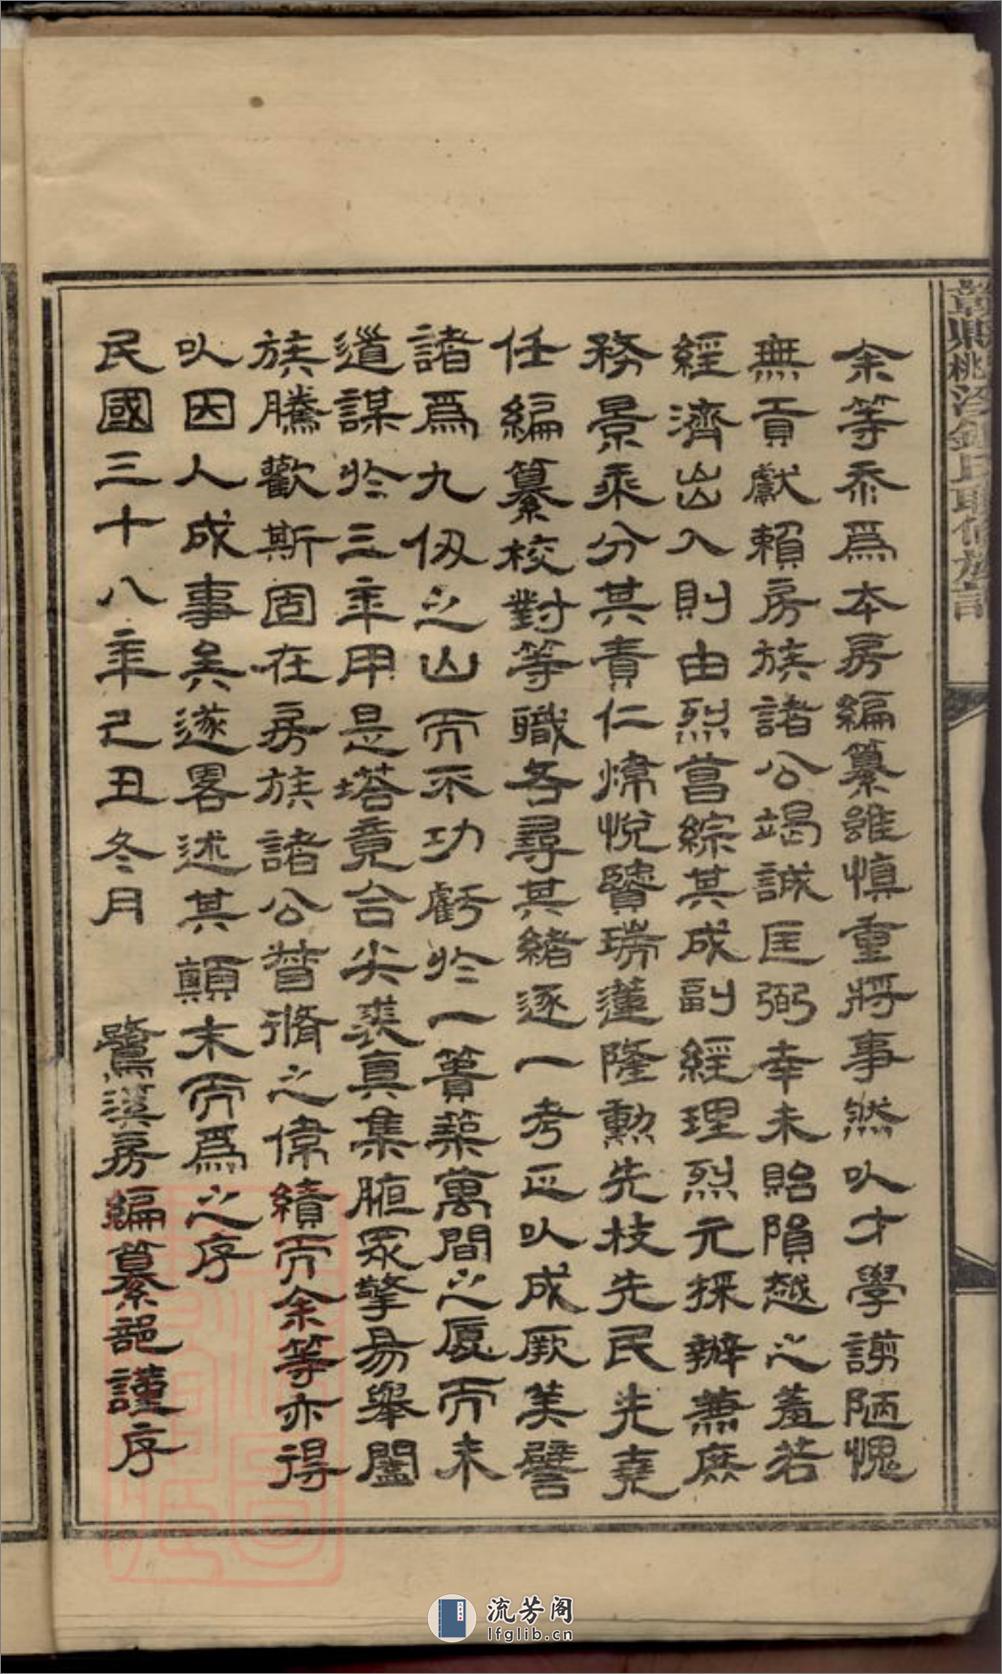 余等忝爲本房編纂誰慎重將事然以才學謭陋愧
無貢獻賴房族諸公竭誠匡弼幸未貽隕越之羞若
經濟出入則由烈菖綜其成副經理烈元採辦兼庶
務景乘分其責仁煒悅賢瑞蓮隆勲先枝先民先堯
任編纂校對等職各尋其緒逐一考正以成厥美譬
諸爲九仭之山而不功虧於一簣築萬間之厦而未
道謀於三年用是塔竟合尖裘真集腋眾擎易舉闔
族騰歡斯固在房族諸公督脩之偉績而余等亦得
以因人成事矣遂畧述其顛末而爲之序
民國三十八年己丑冬月 鷺溪房編纂部謹序
贛縣桃 鍾氏聯修族譜
流芳阁
lfglib.cn